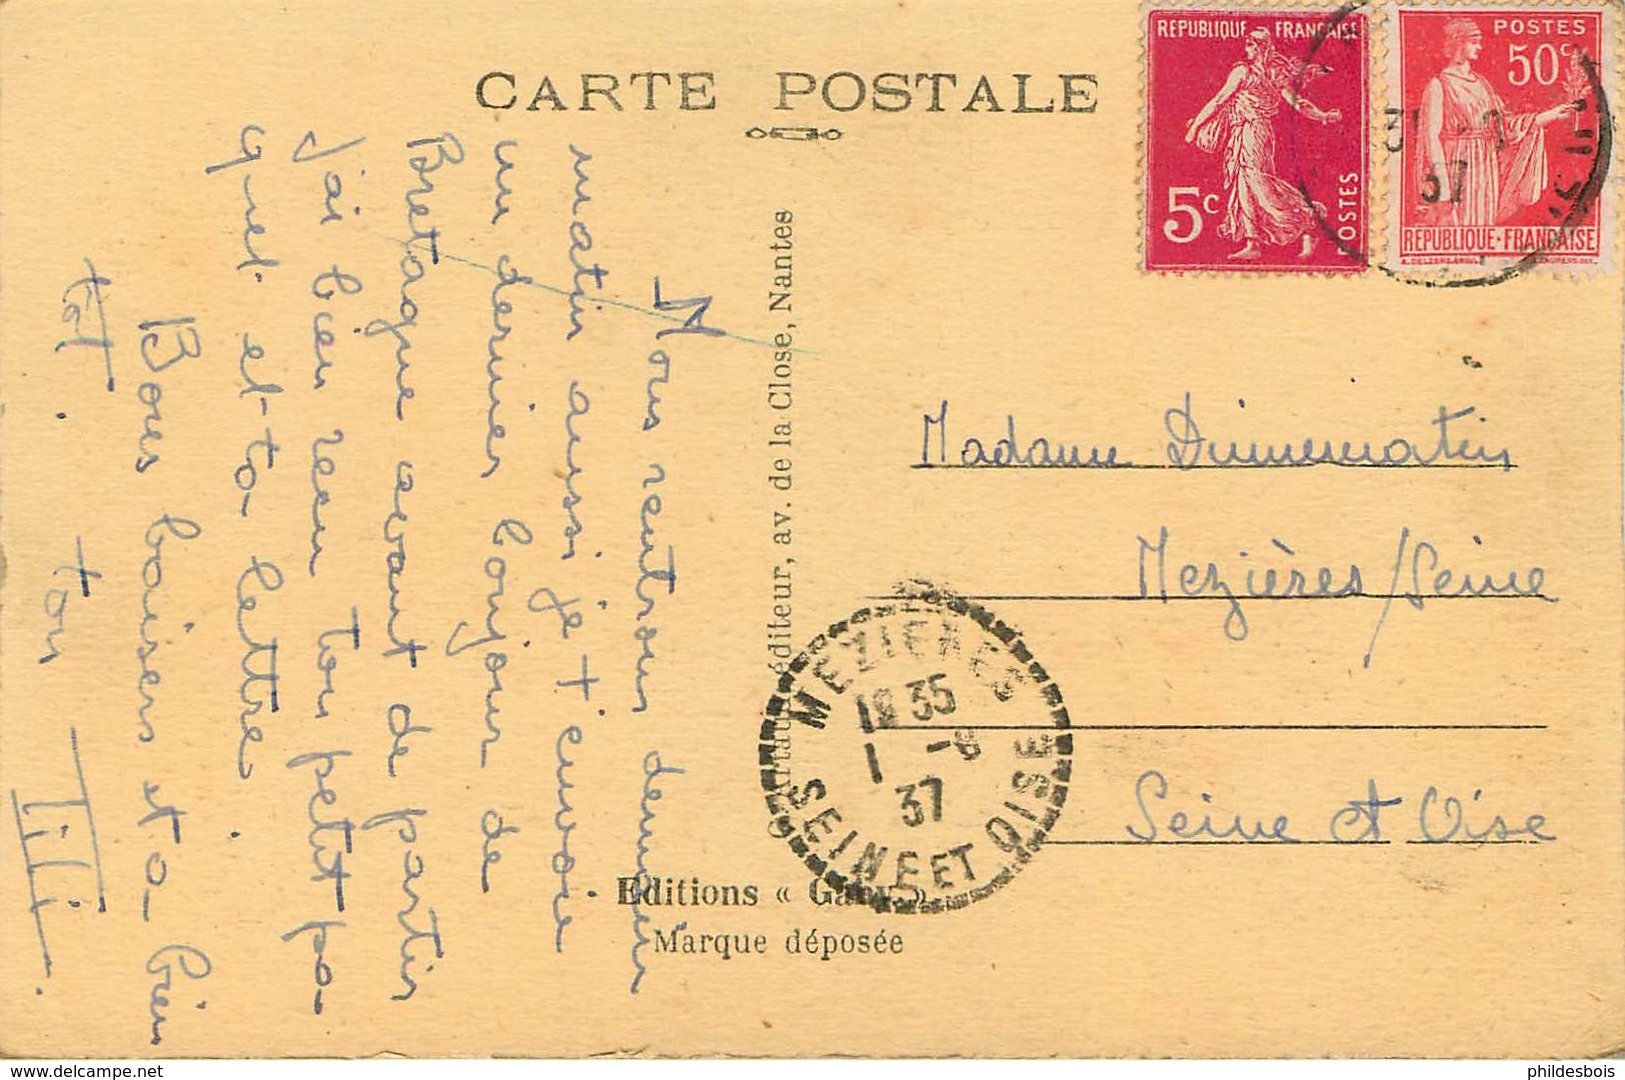 CARTE POSTALE
REPUBLIQUE FRANÇAISE
5c
POSTES
POSTES
50c
REPUBLIQUE-FRANÇAISE
31
37
Nous rentrons demain
matin aussi je t'envoie
un dernier bonjour de
Bretagne avant de partir
j'ai bien reçu ton petit pa-
quet et ta lettre.
Bons baisers et a bien
tôt. ton Lili.
éditeur, av. de la Close, Nantes
Madame Dumematin
Mezières/Seine
Seine et Oise
MEZIERES
18 35
1 -8
37
SEINE ET OISE
Editions « Gaby »
Marque déposée
delcampe.net
phildesbois